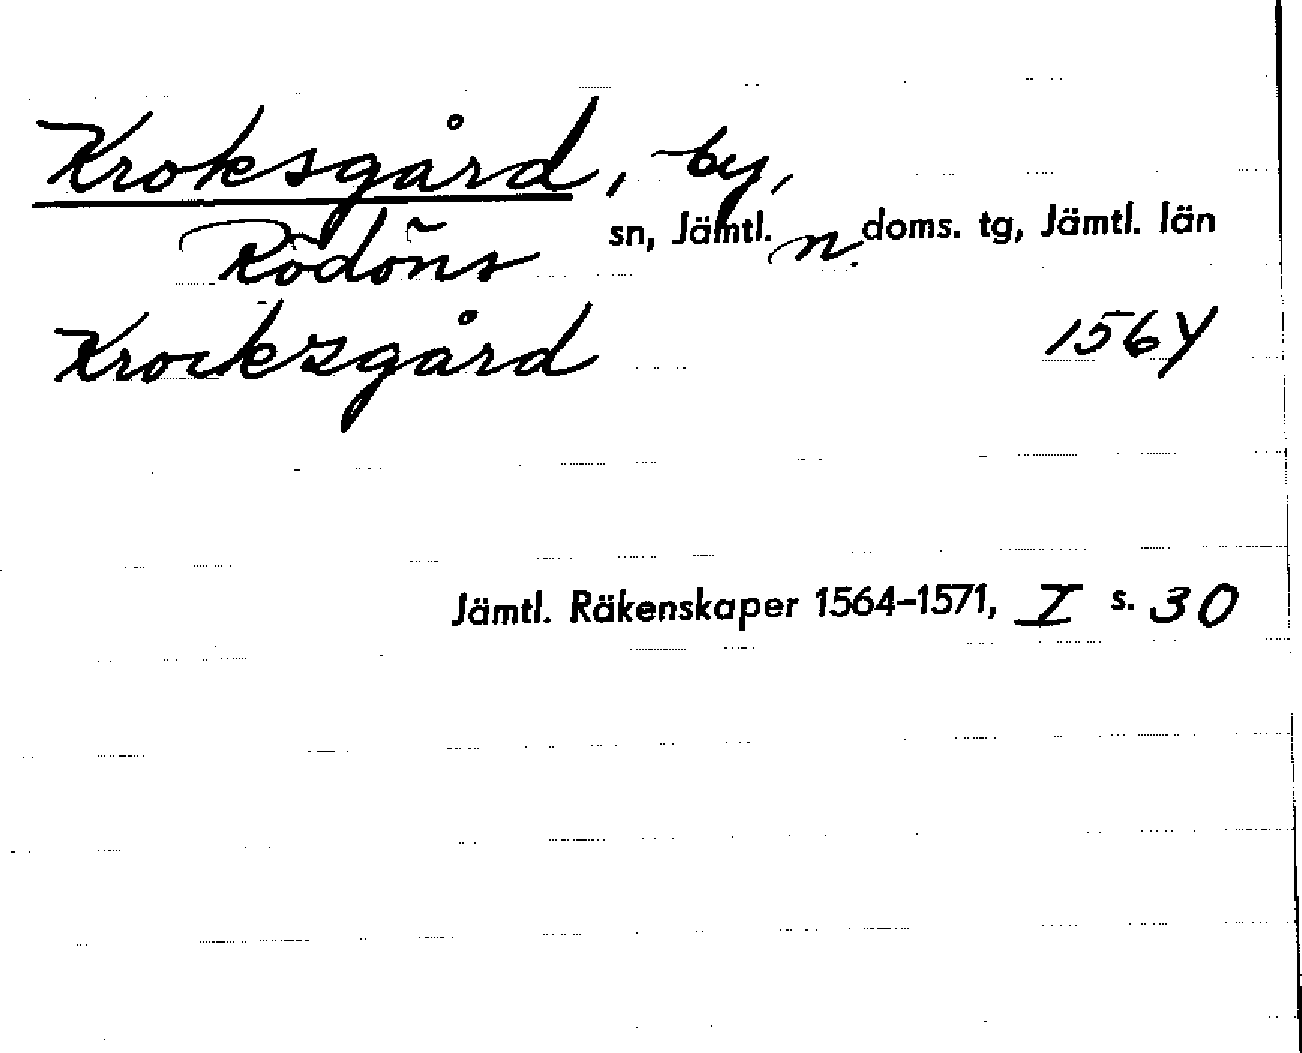 Kroksgård, by,
Rödöns sn, Jämtl. n. doms. tg, Jämtl. län
Krocksgård 1564
Jämtl. Räkenskaper 1564-1571, I s. 30